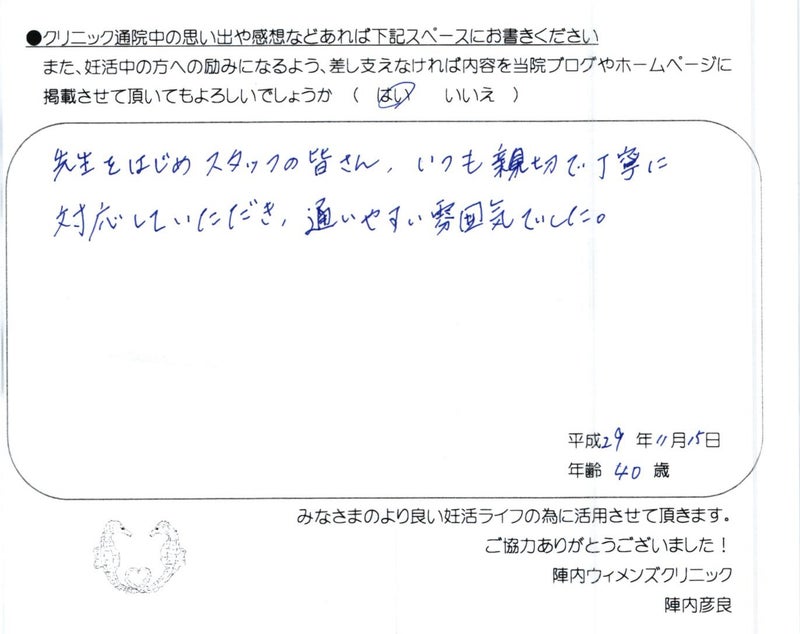 ●クリニック通院中の思い出や感想などあれば下記スペースにお書きください
また、妊活中の方への励みになるよう、差し支えなければ内容を当院ブログやホームページに
掲載させて頂いてもよろしいでしょうか （ はい いいえ ）
先生をはじめスタッフの皆さん、いつも親切で丁寧に
対応していただき、通いやすい雰囲気でした。
平成29年11月15日
年齢 40 歳
みなさまのより良い妊活ライフの為に活用させて頂きます。
ご協力ありがとうございました！
陣内ウィメンズクリニック
陣内彦良